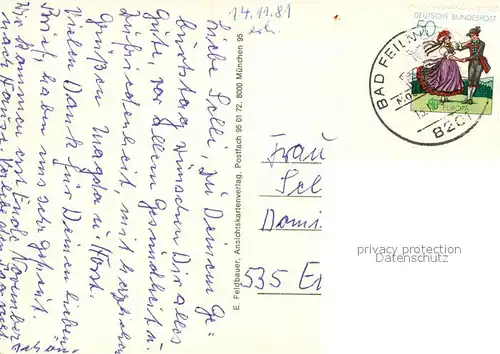 14.11.81
Liebe Selli, zu Deinem Ge-
burtstag wünschen Dir alles
Gute, vor allem Gesundheit u.
Zufriedenheit mit herzlichen
Grüßen Magda u. Horst.
Vielen Dank für Deinen lieben
Brief, haben uns sehr gefreut.
Wir kommen erst Ende November
nach Hause
E. Feldbauer, Ansichtskartenverlag, Postfach 95 01 72, 8000 München 95
DEUTSCHE BUNDESPOST
50
EUROPA
BAD FEILN
820
Frau
535
privacy protection
Datenschutz